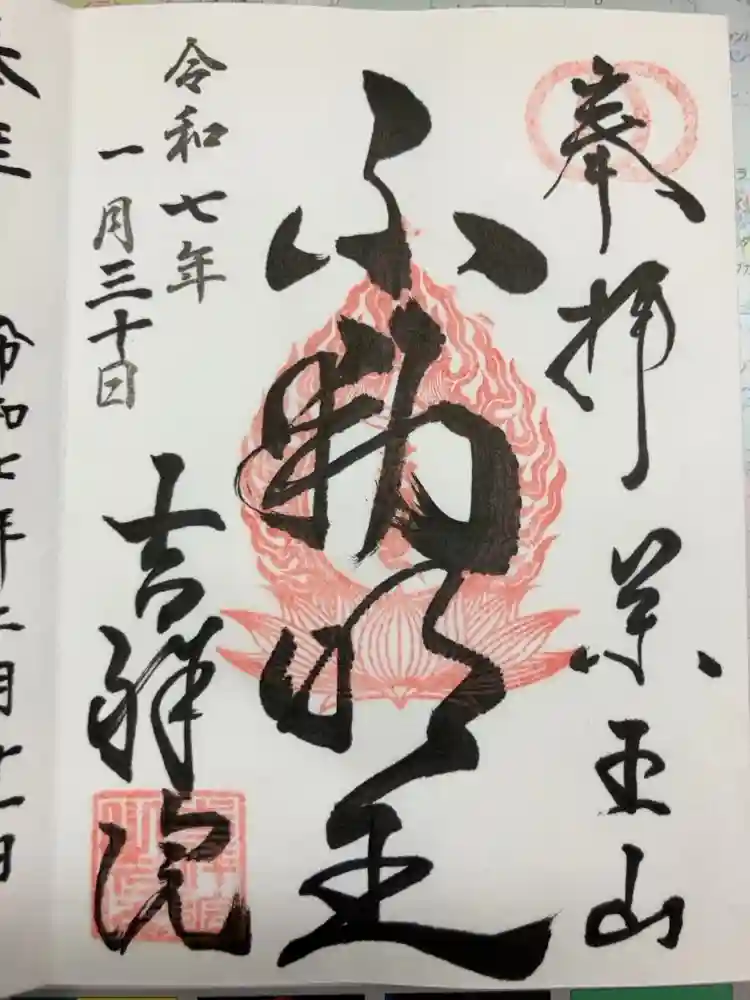 奉拝 薬王山
不動明王
令和七年
一月三十日
吉祥院
令和七年二月十一日